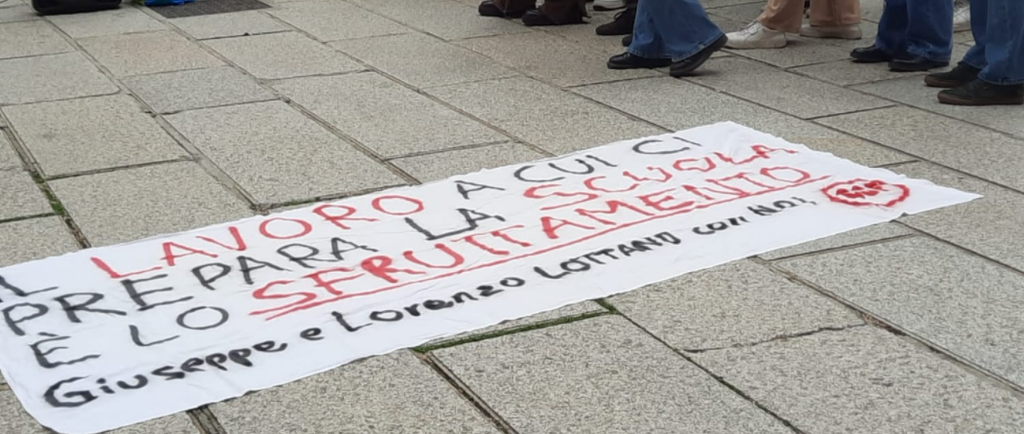 IL LAVORO A CUI CI
PREPARA LA SCUOLA
È LO SFRUTTAMENTO
Giuseppe e Lorenzo LOTTANO con NOI,